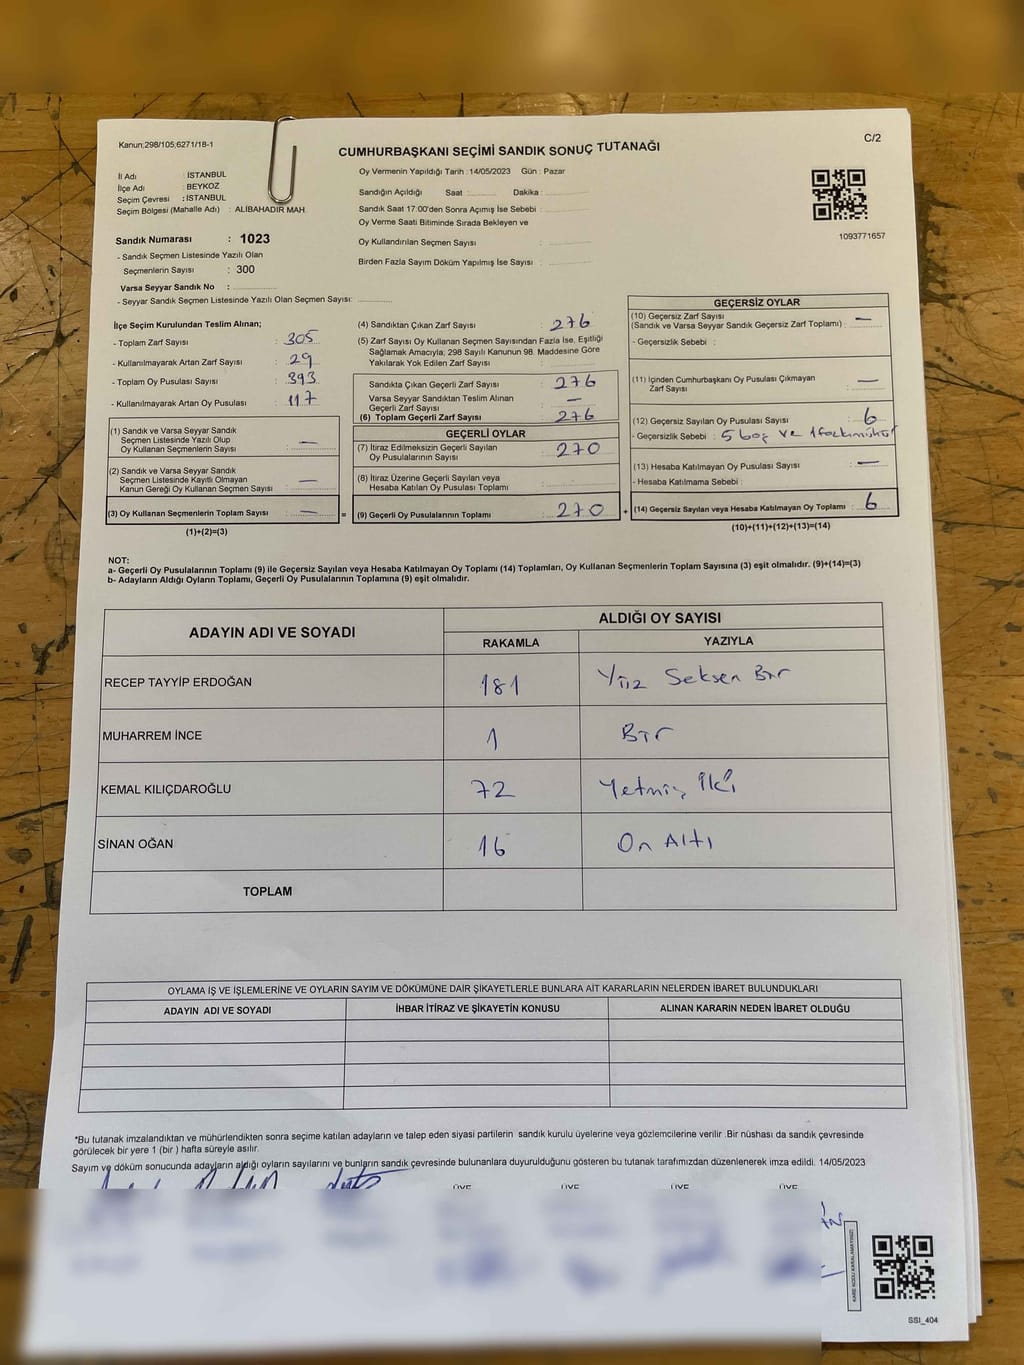 Kanun;298/105;6271/18-1
C/2
CUMHURBAŞKANI SEÇİMİ SANDIK SONUÇ TUTANAĞI
İl Adı : İSTANBUL
İlçe Adı : BEYKOZ
Seçim Çevresi : İSTANBUL
Seçim Bölgesi (Mahalle Adı) : ALİBAHADIR MAH.
Sandık Numarası : 1023
- Sandık Seçmen Listesinde Yazılı Olan
Seçmenlerin Sayısı : 300
Varsa Seyyar Sandık No :
- Seyyar Sandık Seçmen Listesinde Yazılı Olan Seçmen Sayısı:
Oy Vermenin Yapıldığı Tarih : 14/05/2023 Gün : Pazar
Sandığın Açıldığı Saat : Dakika :
Sandık Saat 17:00'den Sonra Açımış İse Sebebi :
Oy Verme Saati Bitiminde Sırada Bekleyen ve
Oy Kullandırılan Seçmen Sayısı :
Birden Fazla Sayım Döküm Yapılmış İse Sayısı :
1093771657
İlçe Seçim Kurulundan Teslim Alınan;
- Toplam Zarf Sayısı : 305
- Kullanılmayarak Artan Zarf Sayısı : 29
- Toplam Oy Pusulası Sayısı : 393
- Kullanılmayarak Artan Oy Pusulası : 117
(1) Sandık ve Varsa Seyyar Sandık
Seçmen Listesinde Yazılı Olup
Oy Kullanan Seçmenlerin Sayısı : —
(2) Sandık ve Varsa Seyyar Sandık
Seçmen Listesinde Kayıtlı Olmayan
Kanun Gereği Oy Kullanan Seçmen Sayısı : —
(3) Oy Kullanan Seçmenlerin Toplam Sayısı : —
(1)+(2)=(3)
(4) Sandıktan Çıkan Zarf Sayısı : 276
(5) Zarf Sayısı Oy Kullanan Seçmen Sayısından Fazla İse, Eşitliği
Sağlamak Amacıyla; 298 Sayılı Kanunun 98. Maddesine Göre
Yakılarak Yok Edilen Zarf Sayısı :
Sandıkta Çıkan Geçerli Zarf Sayısı : 276
Varsa Seyyar Sandıktan Teslim Alınan
Geçerli Zarf Sayısı : —
(6) Toplam Geçerli Zarf Sayısı : 276
GEÇERLİ OYLAR
(7) İtiraz Edilmeksizin Geçerli Sayılan
Oy Pusulalarının Sayısı : 270
(8) İtiraz Üzerine Geçerli Sayılan veya
Hesaba Katılan Oy Pusulası Toplamı :
= (9) Geçerli Oy Pusulalarının Toplamı : 270 +
GEÇERSİZ OYLAR
(10) Geçersiz Zarf Sayısı
(Sandık ve Varsa Seyyar Sandık Geçersiz Zarf Toplamı) : —
- Geçersizlik Sebebi :
(11) İçinden Cumhurbaşkanı Oy Pusulası Çıkmayan
Zarf Sayısı : —
(12) Geçersiz Sayılan Oy Pusulası Sayısı : 6
- Geçersizlik Sebebi : 5 boş ve 1
(13) Hesaba Katılmayan Oy Pusulası Sayısı : —
- Hesaba Katılmama Sebebi :
(14) Geçersiz Sayılan veya Hesaba Katılmayan Oy Toplamı : 6
(10)+(11)+(12)+(13)=(14)
NOT:
a- Geçerli Oy Pusulalarının Toplamı (9) ile Geçersiz Sayılan veya Hesaba Katılmayan Oy Toplamı (14) Toplamları, Oy Kullanan Seçmenlerin Toplam Sayısına (3) eşit olmalıdır. (9)+(14)=(3)
b- Adayların Aldığı Oyların Toplamı, Geçerli Oy Pusulalarının Toplamına (9) eşit olmalıdır.
ADAYIN ADI VE SOYADI
ALDIĞI OY SAYISI
RAKAMLA YAZIYLA
RECEP TAYYİP ERDOĞAN 181 Yüz Seksen Bir
MUHARREM İNCE 1 Bir
KEMAL KILIÇDAROĞLU 72 Yetmiş İki
SİNAN OĞAN 16 On Altı
TOPLAM
OYLAMA İŞ VE İŞLEMLERİNE VE OYLARIN SAYIM VE DÖKÜMÜNE DAİR ŞİKAYETLERLE BUNLARA AİT KARARLARIN NELERDEN İBARET BULUNDUKLARI
ADAYIN ADI VE SOYADI İHBAR İTİRAZ VE ŞİKAYETİN KONUSU ALINAN KARARIN NEDEN İBARET OLDUĞU
*Bu tutanak imzalandıktan ve mühürlendikten sonra seçime katılan adayların ve talep eden siyasi partilerin sandık kurulu üyelerine veya gözlemcilerine verilir .Bir nüshası da sandık çevresinde
görülecek bir yere 1 (bir ) hafta süreyle asılır.
Sayım ve döküm sonucunda adayların aldığı oyların sayılarını ve bunların sandık çevresinde bulunanlara duyurulduğunu gösteren bu tutanak tarafımızdan düzenlenerek imza edildi. 14/05/2023
ÜYE ÜYE ÜYE ÜYE
KARE KODU KARALAMAYINIZ!
SSI_404